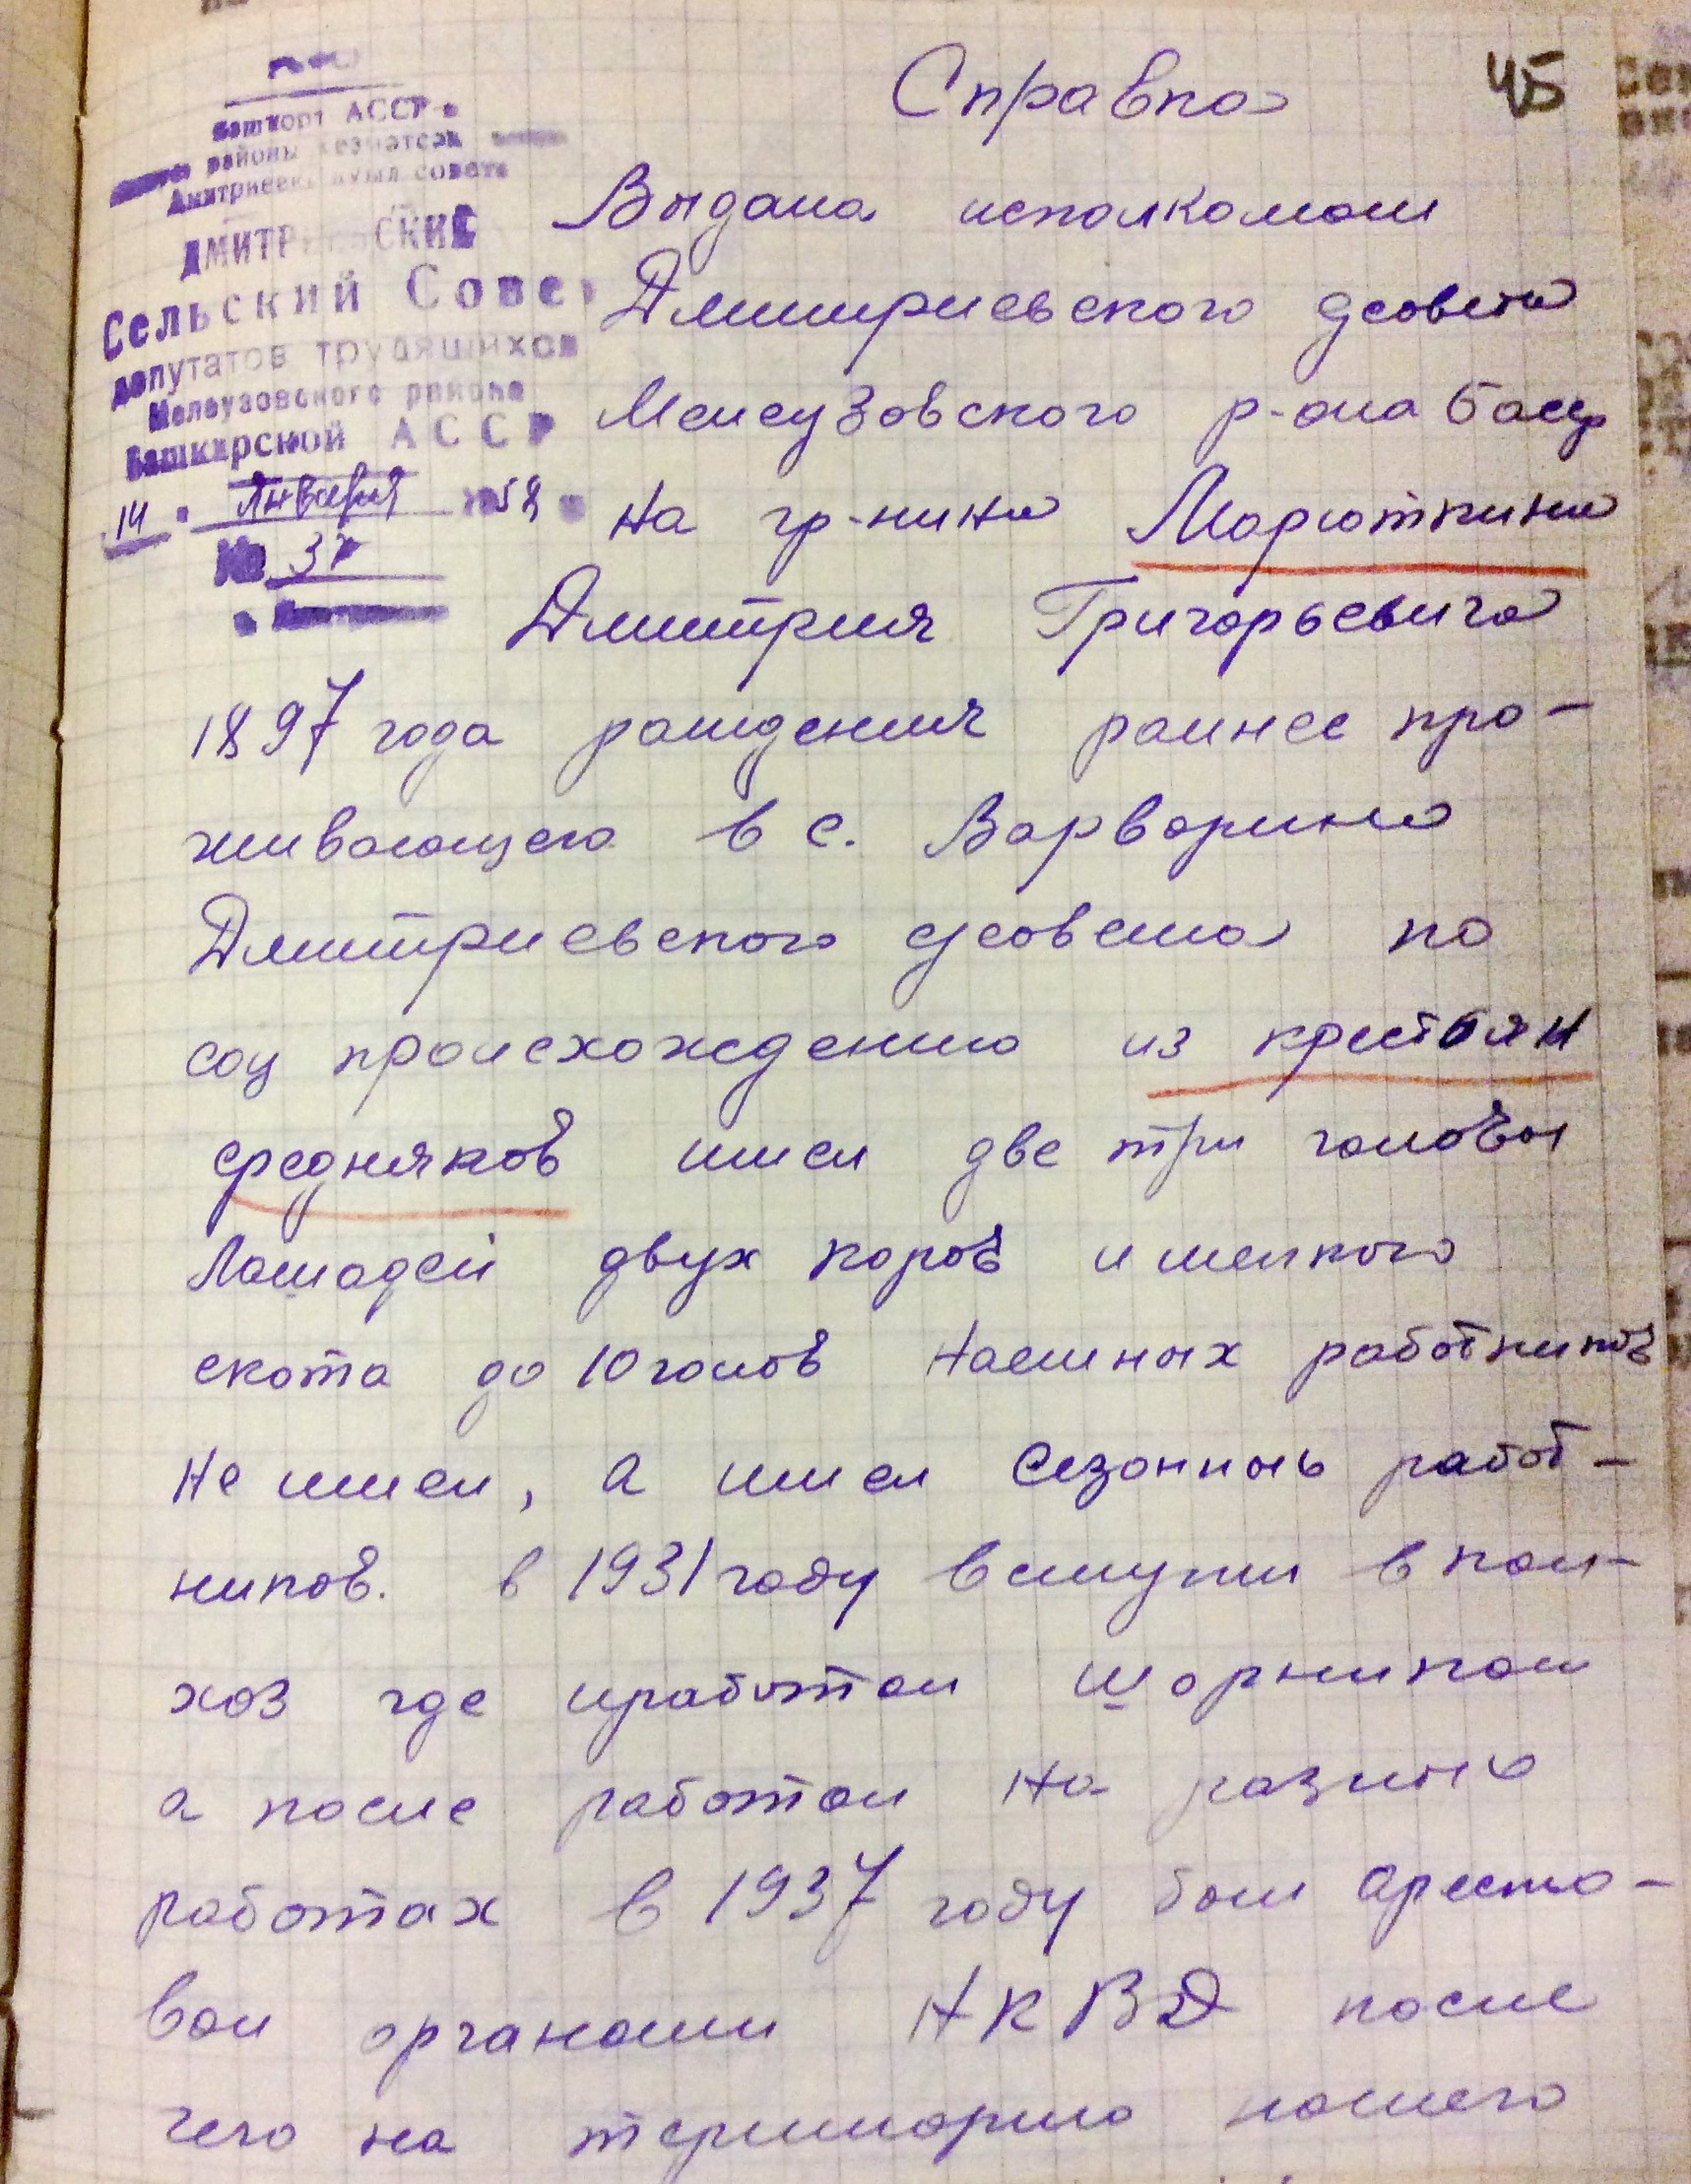 Справка
45
Башкорт АССР
районы
совета
Сельский Совет
депутатов трудящихся
Мелеузовского района
Башкирской АССР
14 января 1958
№ 37
Выдана исполкомом
Дмитриевского с/совета
Мелеузовского р-она Басср
на гр-нина Марюткина
Дмитрия Григорьевича
1897 года рашдения раннее про-
живающего в с. Варварино
Дмитриевского с/совета по
соц происхождению из крестьян
средняков имел две три головы
Лошадей двух коров и мелкого
скота до 10 голов наемных работников
не имел, а имел сезонных работ-
ников. в 1931 году вступил в кол-
хоз где проработал шорником
а после работал на разных
работах в 1937 году был аресто-
ван органами НКВД после
чего на територию нашего